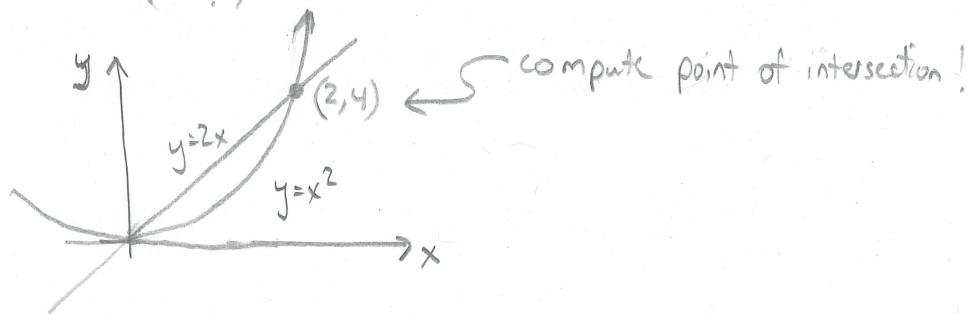 y
compute point of intersection!
(2,4)
y=2x
y=x²
x